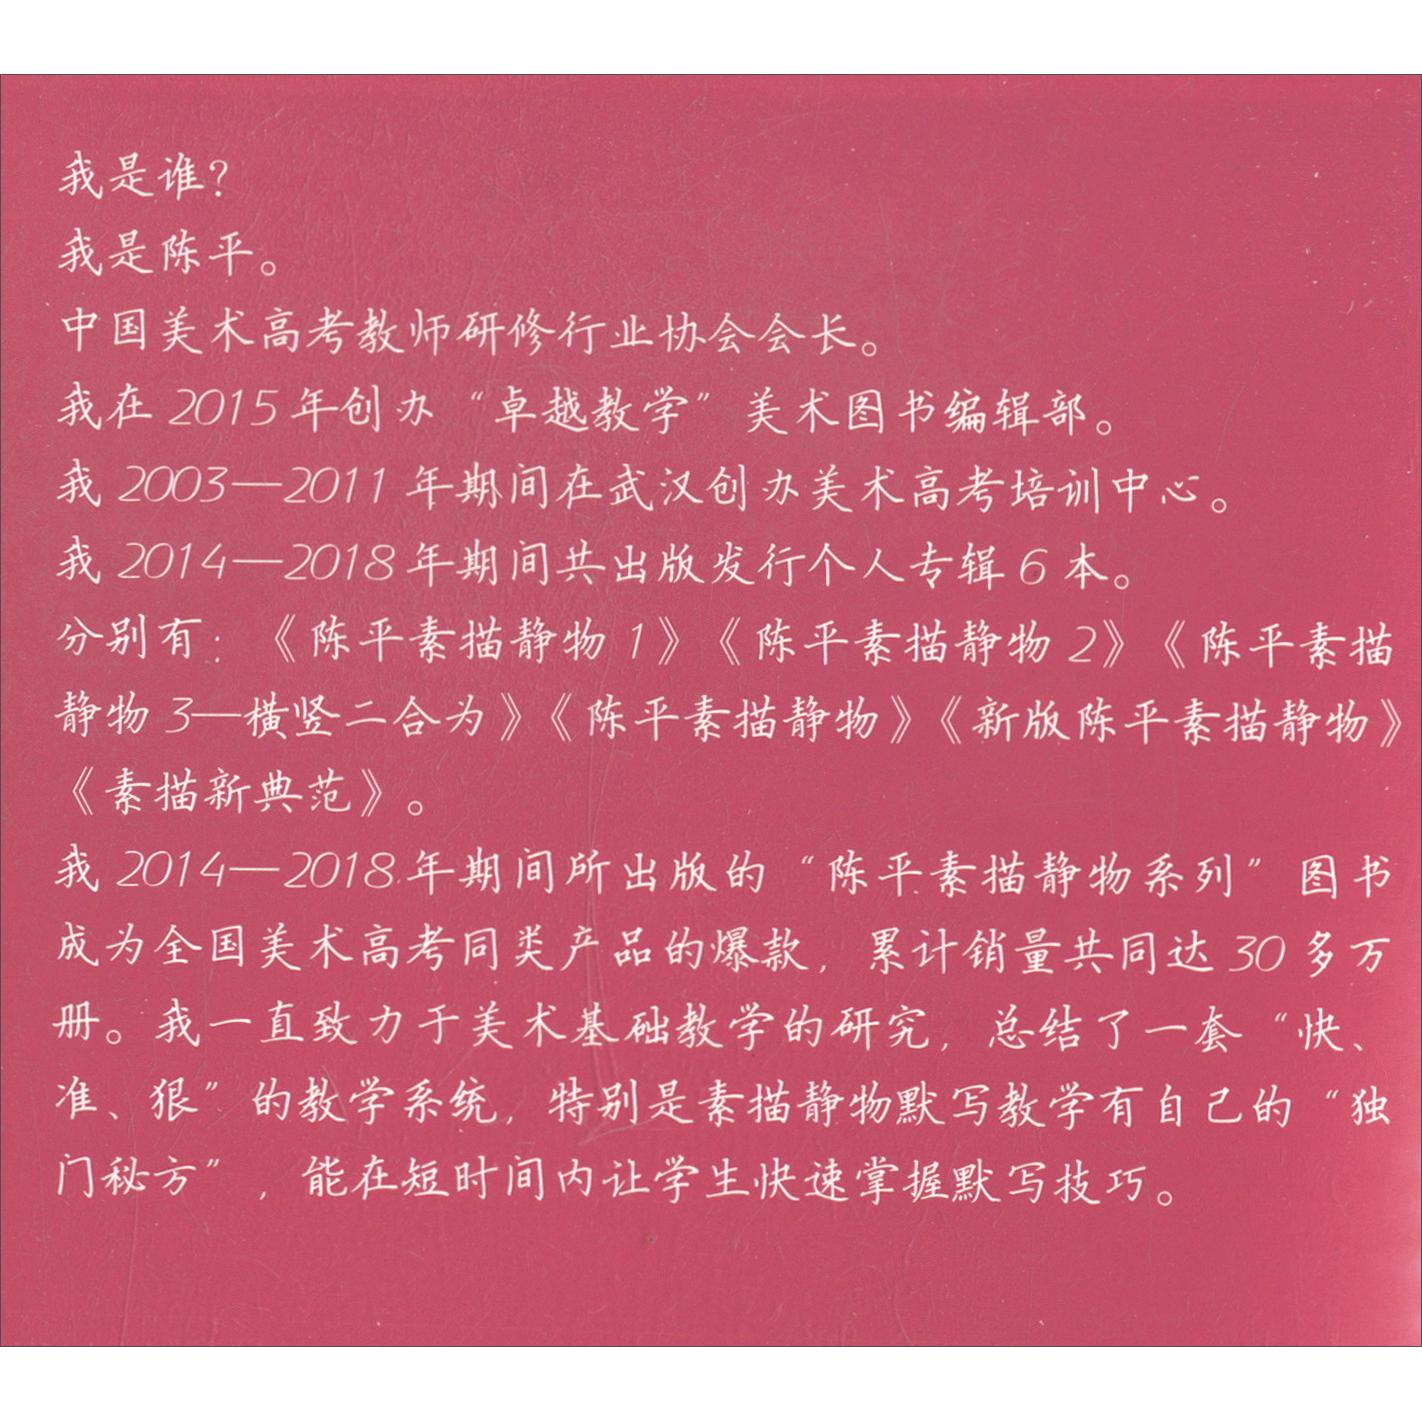 我是谁？
我是陈平。
中国美术高考教师研修行业协会会长。
我在 2015 年创办“卓越教学”美术图书编辑部。
我 2003—2011 年期间在武汉创办美术高考培训中心。
我 2014—2018 年期间共出版发行个人专辑 6 本。
分别有：《陈平素描静物 1》《陈平素描静物 2》《陈平素描
静物 3—横竖二合为》《陈平素描静物》《新版陈平素描静物》
《素描新典范》。
我 2014—2018 年期间所出版的“陈平素描静物系列”图书
成为全国美术高考同类产品的爆款，累计销量共同达 30 多万
册。我一直致力于美术基础教学的研究，总结了一套“快、
准、狠”的教学系统，特别是素描静物默写教学有自己的“独
门秘方”，能在短时间内让学生快速掌握默写技巧。